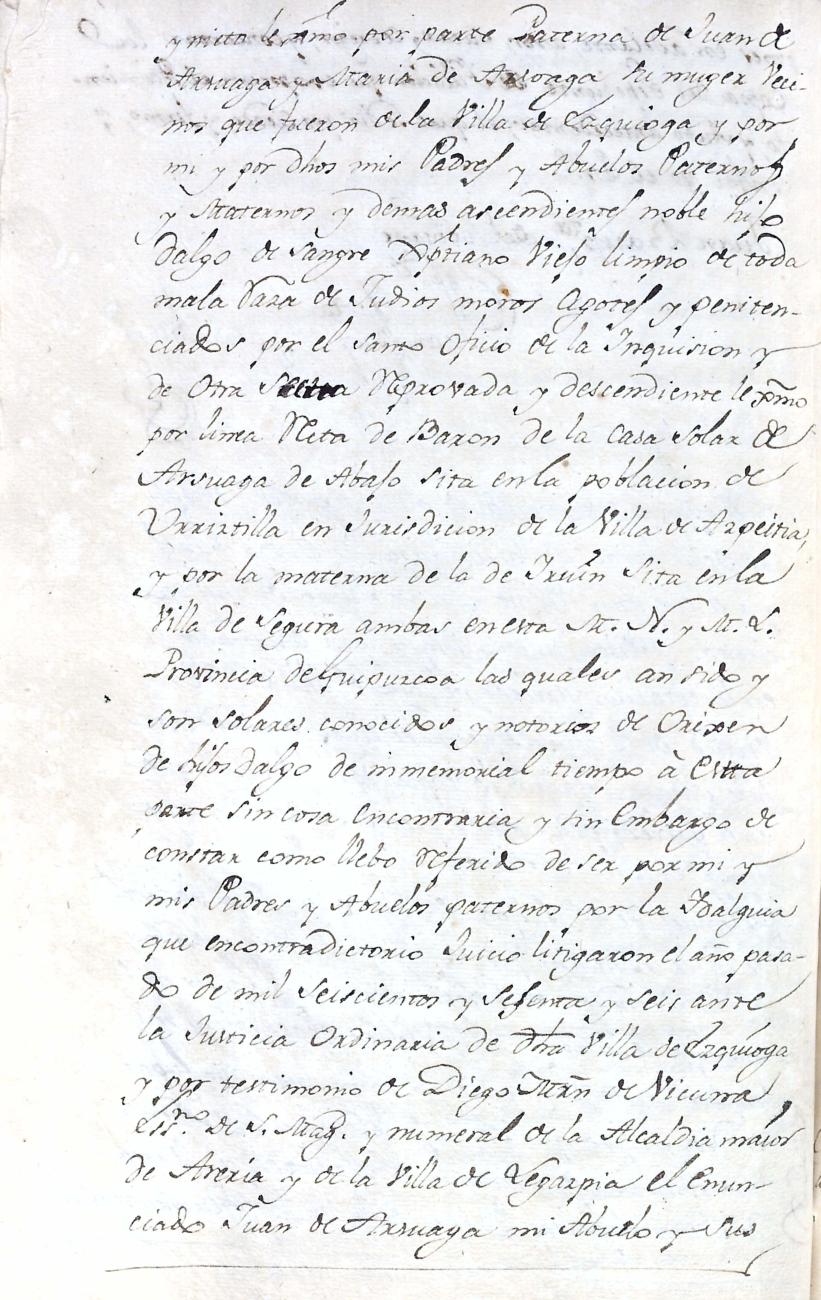 y nieto lexmo. por parte Paterna de Juan de
Arsuaga y Maria de Arsuaga su muger Veci-
nos que fueron de la Villa de Ezquioga y por
mi y por dhos mis Padres y Abuelos Paternos
y Maternos y demas ascendientes noble hijo
dalgo de sangre Xptiano Viejo limpio de toda
mala Raza de Judios moros Agotes y peniten-
ciados por el Santo Oficio de la Inquision y
de Otra Sectta Reprovada y descendiente lexmo
por linea Reta de Baron de la Casa Solar de
Arsuaga de Abajo sita en la poblacion de
Urriztilla en Jurisdicion de la Villa de Azpeitia,
y por la materna de la de Irun Sita en la
Villa de Segura ambas en esta M. N. y M. L.
Provincia de Guipuzcoa las quales an sido y
son solares conocidos y notorios de Orixen
de hijos dalgo de inmemorial tiempo à Estta
parte sin cosa Encontraria y sin Embargo de
constar como llebo Referido de ser por mi y
mis Padres y Abuelos paternos por la Idalguia
que encontradictorio Juicio litigaron el año pasa-
do de mil Seiscientos y Sesenta y seis ante
la Justicia Ordinaria de dha Villa de Ezquioga
y por testimonio de Diego Mrn de Vicuña,
essno. de S. Mag. y numeral de la Alcaldia maior
de Areria y de la Villa de Legazpia el Enun-
ciado Juan de Arsuaga mi Abuelo y sus